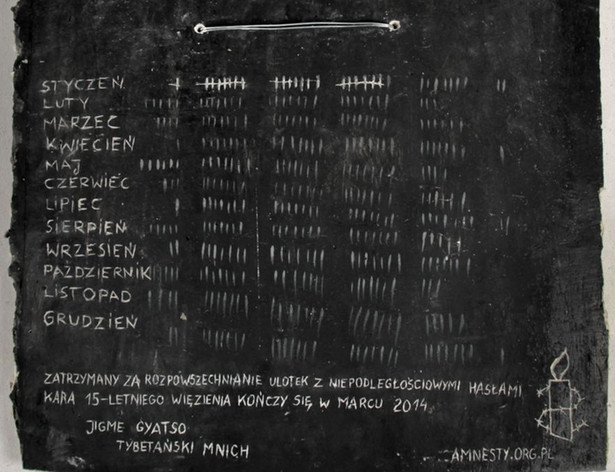 STYCZEŃ
LUTY
MARZEC
KWIECIEŃ
MAJ
CZERWIEC
LIPIEC
SIERPIEŃ
WRZESIEŃ
PAŹDZIERNIK
LISTOPAD
GRUDZIEŃ
ZATRZYMANY ZA ROZPOWSZECHNIANIE ULOTEK Z NIEPODLEGŁOŚCIOWYMI HASŁAMI
KARA 15-LETNIEGO WIĘZIENIA KOŃCZY SIĘ W MARCU 2014.
JIGME GYATSO
TYBETAŃSKI MNICH
AMNESTY.ORG.PL